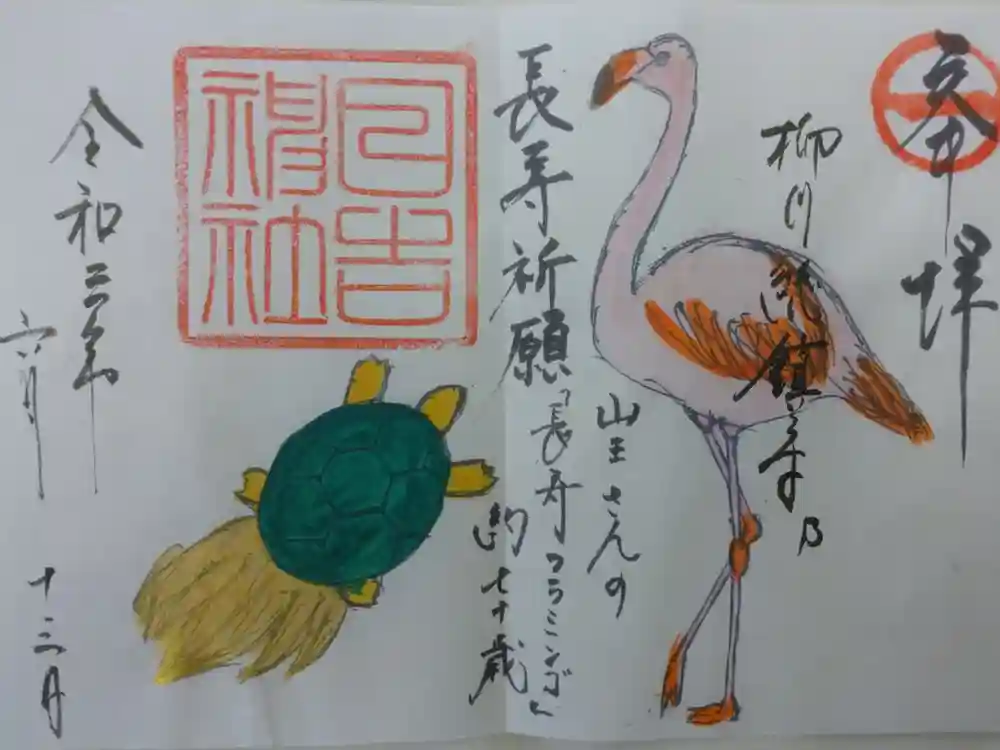 奉拝
柳川総鎮守乃
山王さんの
長寿祈願「長寿フラミンゴ」
約七十歳
日吉
神社
令和二年
六月十三日